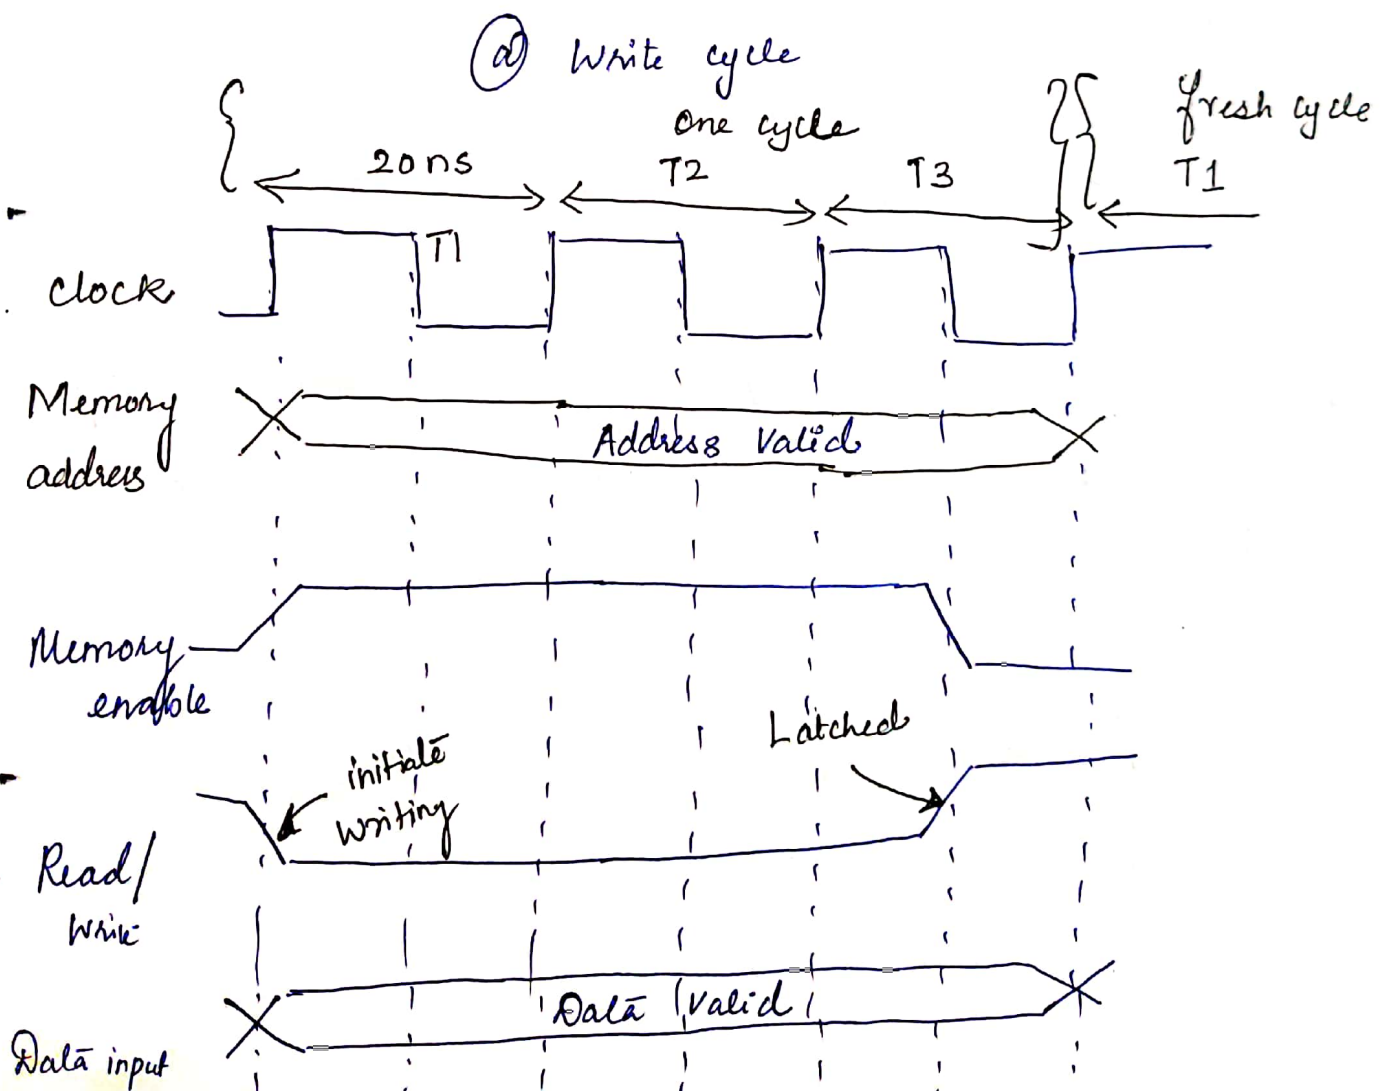 a Write cycle
one cycle
fresh cycle
20ns T2 T3 T1
T1
Clock
Memory
address
Address Valid
Memory
enable
Latched
initiate
writing
Read/
Write
Data Valid
Data input